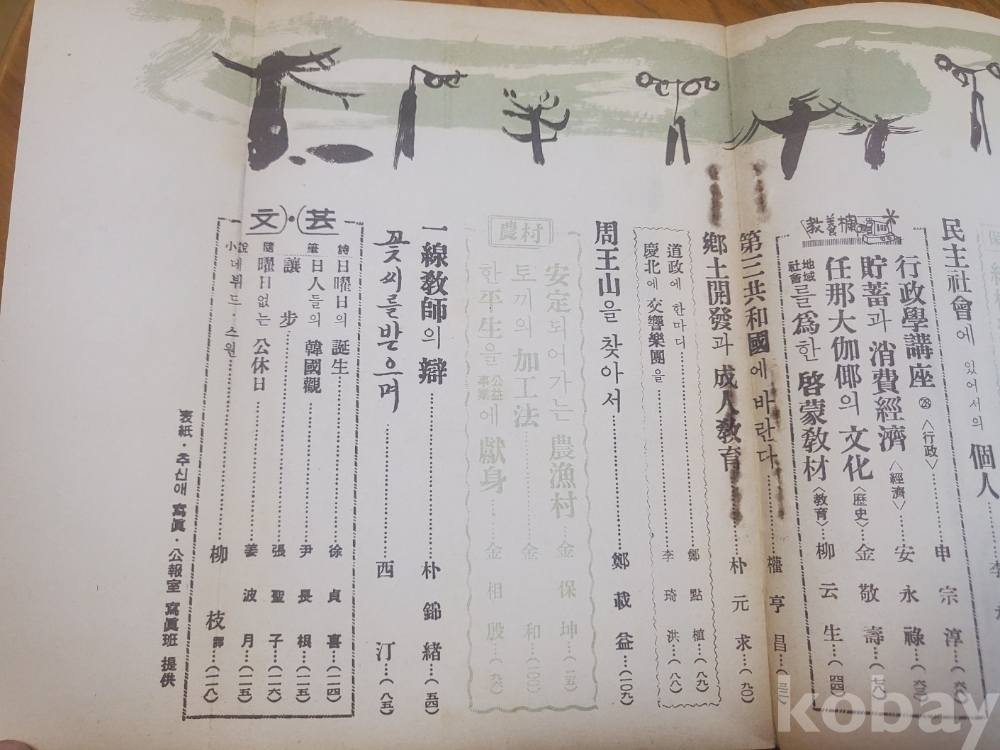 民主社會에 있어서의 個人
教養欄
行政學講座 ㉘ 〈行政〉 … 申宗淳 …(六八)
貯蓄과 消費經濟 〈經濟〉 … 安永祿 …(六三)
任那大伽倻의 文化 〈歷史〉 … 金敬壽 …
地域社會를 爲한 啓蒙敎材 〈敎育〉 … 柳云生 …(四四)
第三共和國에 바란다 … 權亨昌 …
鄕土開發과 成人敎育 … 朴元求 …(九〇)
道政에 한마디 … 鄭點植 …(八九)
慶北에 交響樂團을 … 李琦洪 …(八八)
周王山을 찾아서 … 鄭載益 …(一〇九)
農村
安定되어가는 農漁村 … 金保坤
토끼의 加工法 … 金和 …(一〇〇)
한平生을 公益事業에 獻身 … 金相殷 …(九九)
一線敎師의 辯 … 朴錦緖 …(五四)
꽃씨를받으며 … 西汀 …(八五)
文·芸
詩 日曜日의 誕生 … 徐貞喜 …(一一四)
隨筆 日人들의 韓國觀 … 尹長根 …(一一五)
讓步 … 張聖子 …(一一六)
曜日없는 公休日 … 姜波月 …(一一五)
小說 네뷔드·스원 … 柳枝譯 …(一一八)
表紙·추신애 寫眞·公報室 寫眞班 提供
kobay